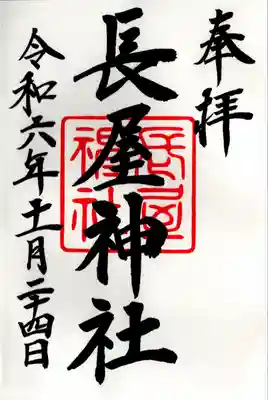 奉拝
長屋神社
令和六年十一月二十四日